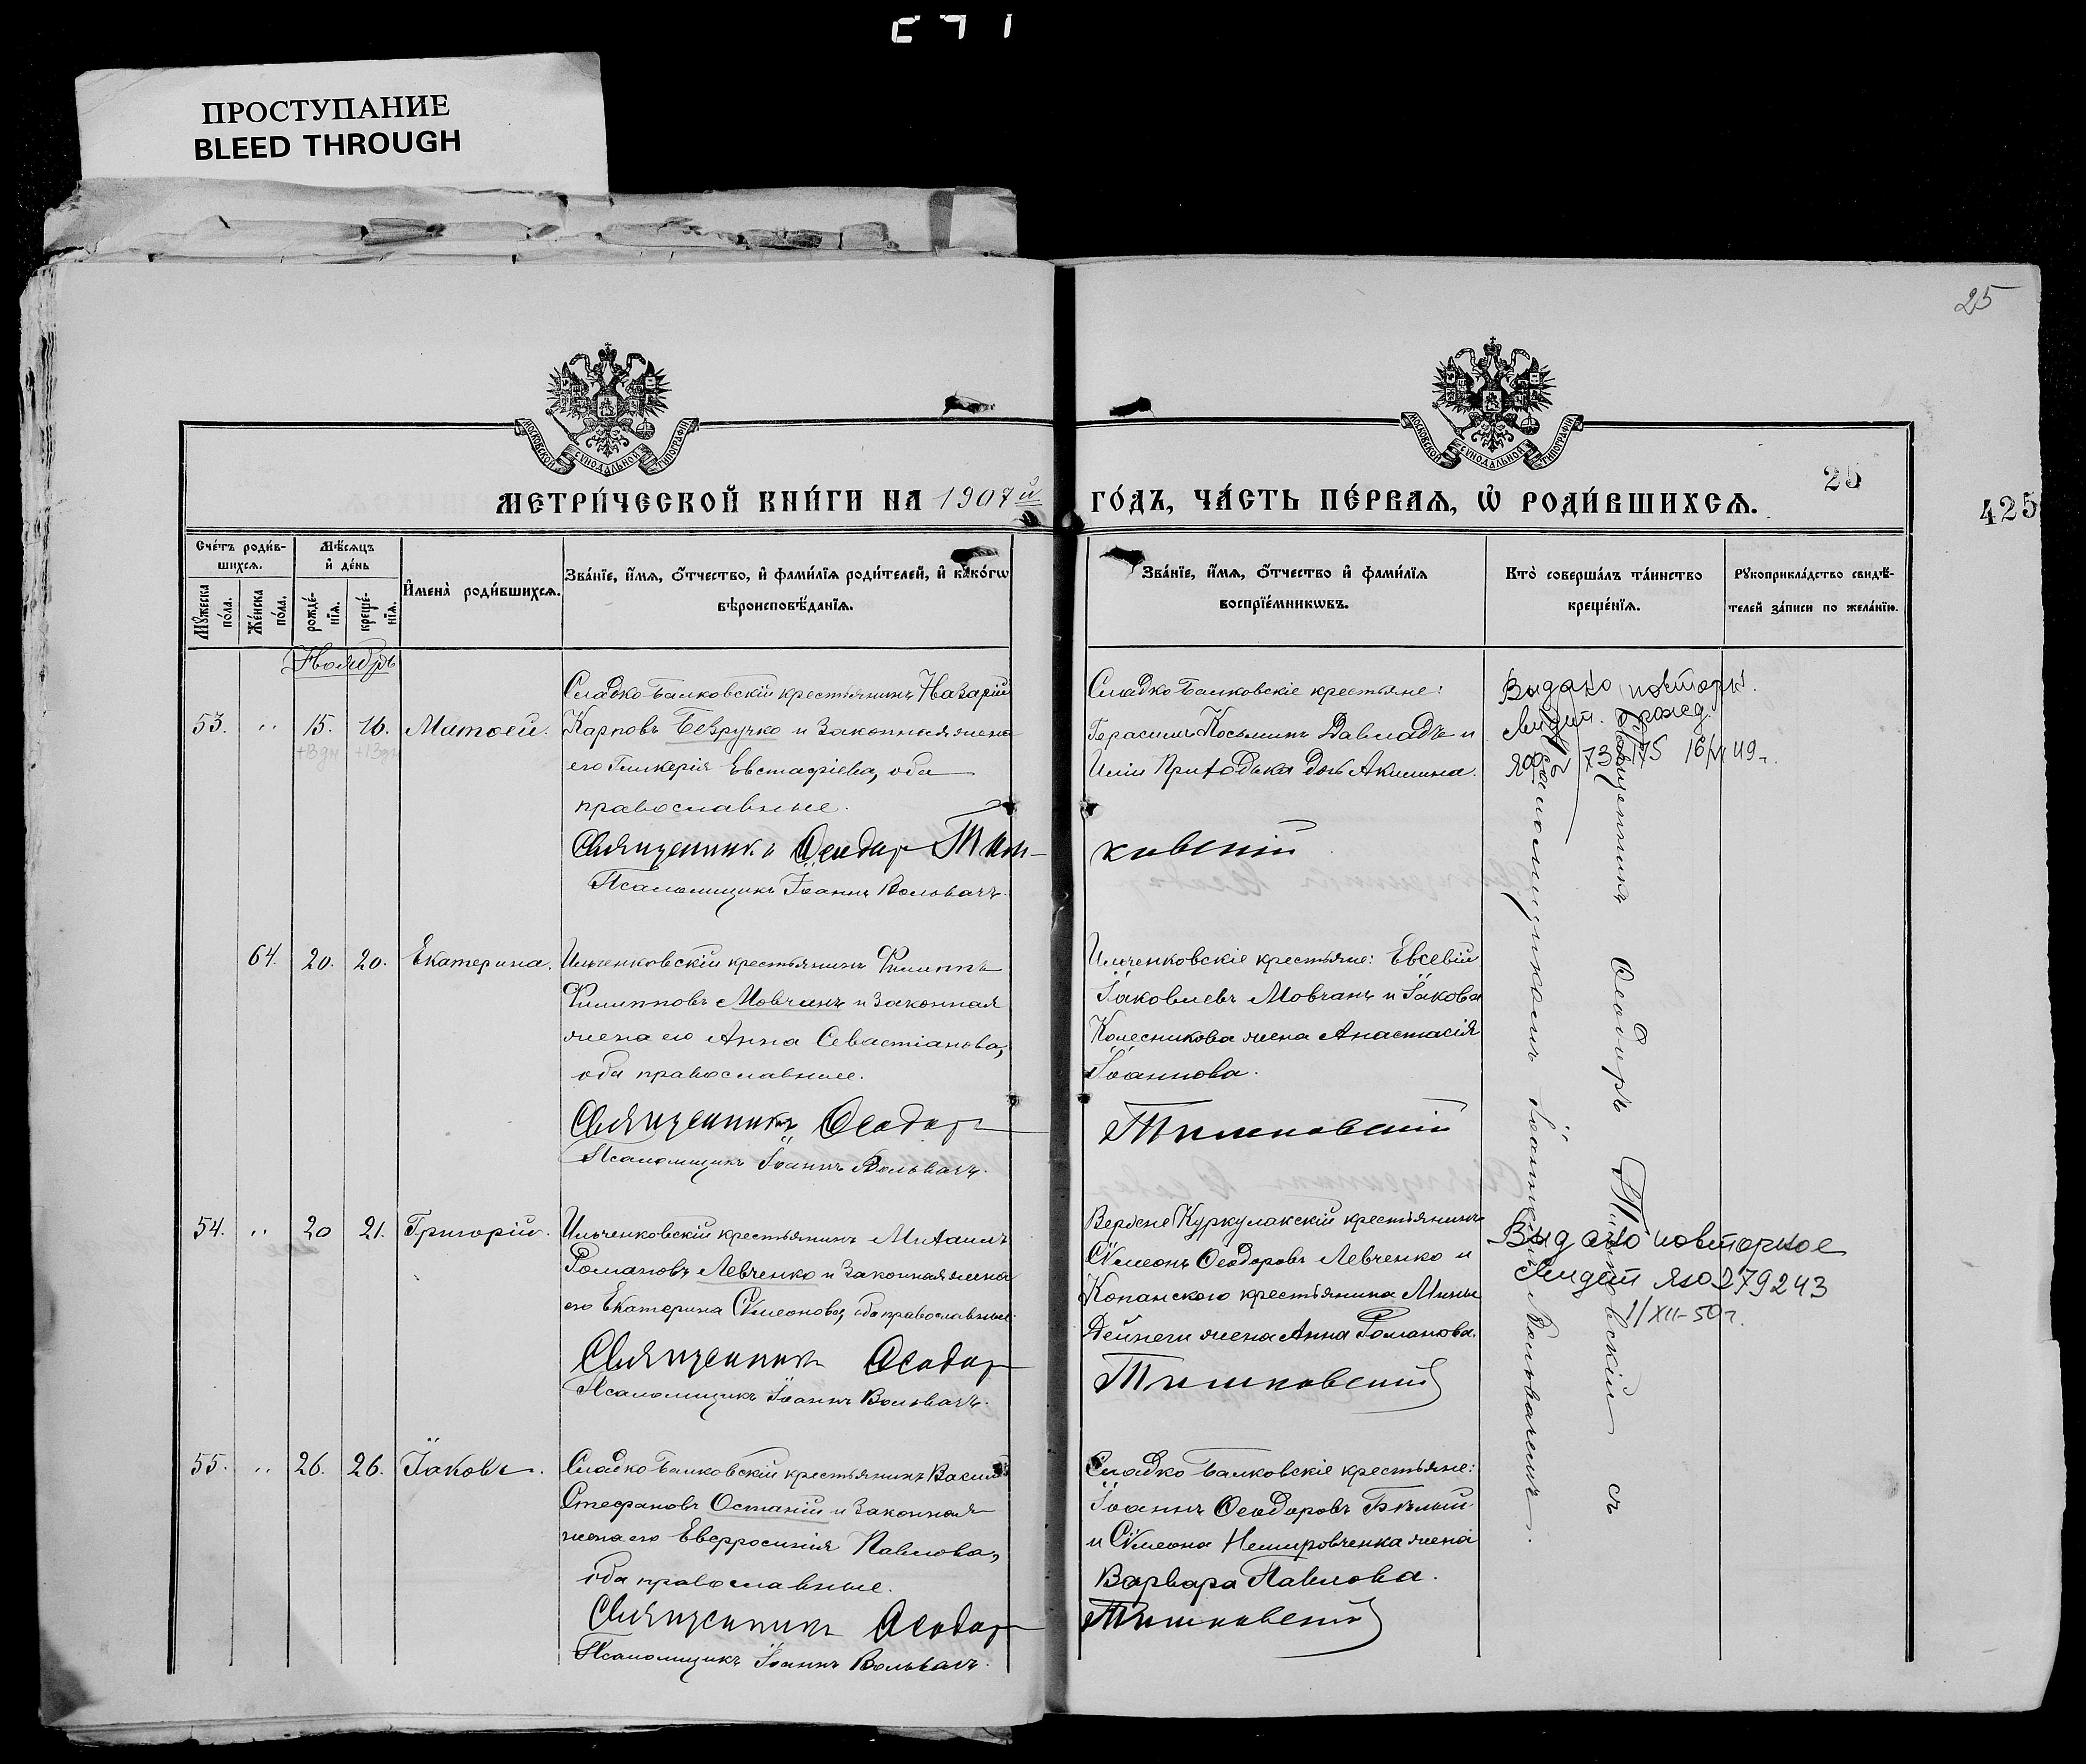 ПРОСТУПАНИЕ
BLEED THROUGH
25
МОСКОВСКОЙ СѴНОДАЛЬНОЙ ТИПОГРАФІИ
МОСКОВСКОЙ СѴНОДАЛЬНОЙ ТИПОГРАФІИ
МЕТРИ́ЧЕСКОЙ КНИ́ГИ НА 1907й ГО́ДЪ, ЧА́СТЬ ПЕ́РВАѦ, Ѡ҆ РОДИ́ВШИХСѦ.
25
425
Сче́тъ роди́в-
шихсѧ.
Мꙋ́жеска по́ла.
Же́нска по́ла.
Мѣ́сѧцъ
и҆ де́нь
рожде́-
нїѧ.
креще́-
нїѧ.
И҆мена̀ роди́вшихсѧ.
Зва́нїе, и҆́мѧ, ѻ҆́тчество, и҆ фами́лїѧ роди́телей, и҆ како́гѡ
вѣроисповѣ́данїѧ.
Зва́нїе, и҆́мѧ, ѻ҆́тчество и҆ фами́лїѧ
воспрїе́мникѡвъ.
Кто̀ соверша́лъ та́инство
креще́нїѧ.
Рꙋкоприкла́дство свидѣ́-
телей за́писи по жела́нїю.
Ноябрь
53. " 15. 16. Матѳей.
Сладко Балковскій крестьянинъ Назарій
Карповъ Безручко и законная жена
его Гликерія Евстафіева, оба
православные.
Священникъ Ѳеодоръ Тиш-
Псаломщикъ Іоаннъ Вольвачъ.
Сладко Балковскіе крестьяне:
Герасимъ Косьминъ Давладъ и
Иліи Приходька дочь Акилина.
ковскій
Выдано повторн.
свидет. о рожд.
ЯО 73175 16/ 49 г.
64. 20. 20. Екатерина.
Ильченковскій крестьянинъ Филиппъ
Филипповъ Мовчанъ и законная
жена его Анна Севастіанова,
оба православные.
Священникъ Ѳеодоръ
Псаломщикъ Іоаннъ Вольвачъ.
Ильченковскіе крестьяне: Евсевій
Іаковлевъ Мовчанъ и Іакова
Колесникова жена Анастасія
Іоаннова.
Тишковскій
54. " 20 21. Григорій.
Ильченковскій крестьянинъ Михаилъ
Романовъ Левченко и законная жена
его Екатерина Сѵмеонова, оба православные.
Священникъ Ѳеодоръ
Псаломщикъ Іоаннъ Вольвачъ.
Верхне Куркулакскій крестьянинъ
Сѵмеонъ Ѳеодоровъ Левченко и
Копанского крестьянина Мины
Дейнеги жена Анна Романова.
Тишковскій
Выдано повторное
свидет ЯЮ 279243
1/XII-50 г.
55. " 26. 26. Іаковъ.
Сладко Балковскій крестьянинъ Василій
Стефановъ Остапій и законная
жена его Евфросинія Павлова,
оба православные.
Священникъ Ѳеодоръ
Псаломщикъ Іоаннъ Вольвачъ.
Сладко Балковскіе крестьяне:
Іоаннъ Ѳеодоровъ Бѣлый
и Сѵмеона Немировченка жена
Варвара Павлова.
Тишковскій
Священникъ Ѳеодоръ Тишковскій съ
псаломщикомъ Іоанникіемъ Вольвачемъ.